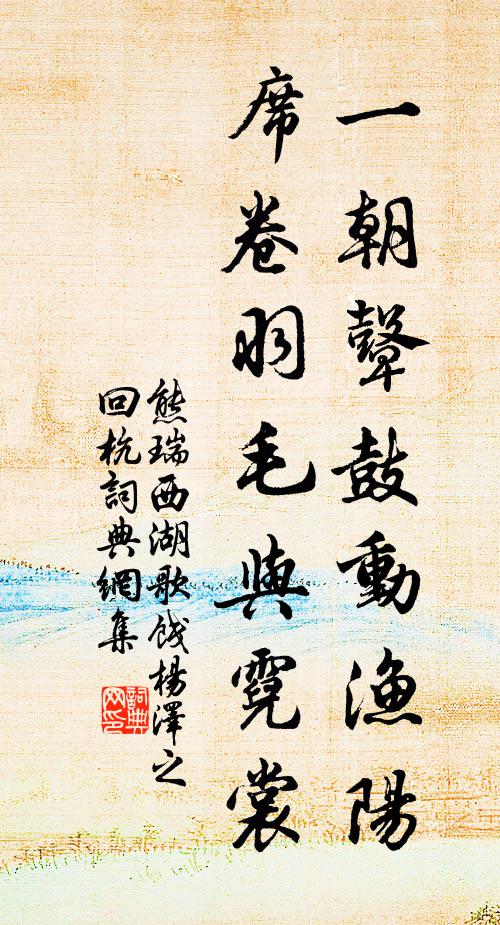 一朝鼙鼓動漁陽
席卷羽毛與霓裳
熊瑞西湖歌餞楊澤之
回杭詞典網集
詞典
网印